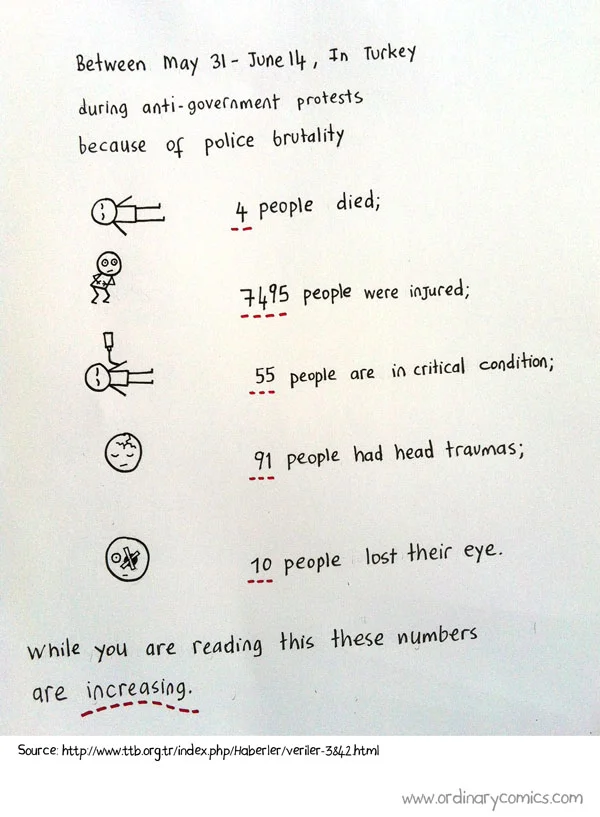 Between May 31 - June 14, In Turkey
during anti-government protests
because of police brutality
4 people died;
7495 people were injured;
55 people are in critical condition;
91 people had head travmas;
10 people lost their eye.
While you are reading this these numbers
are increasing.
Source: http://www.ttb.org.tr/index.php/Haberler/veriler-3842.html
www.ordinarycomics.com